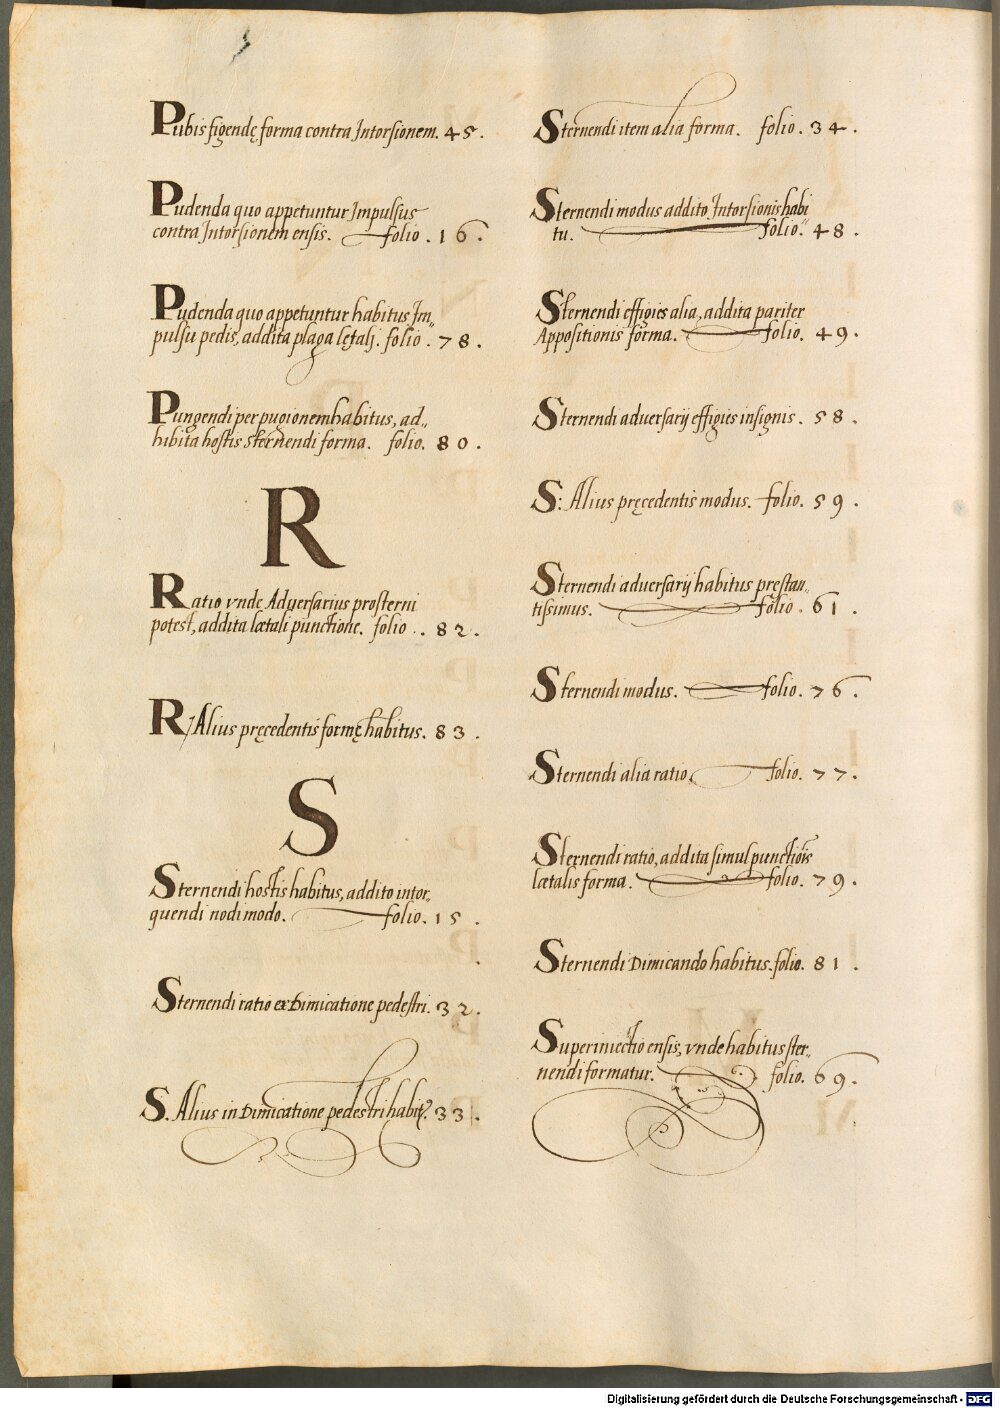 Pubis figendę, forma contra Intorsionem. 45.
Pudenda quo appetuntur Impulsus
contra Intorsionem ensis. folio. 16.
Pudenda quo appetuntur habitus Im„
pulsu pedis, addita plaga lętalj. folio. 78.
Pungendi per pugionem habitus, ad„
hibita hostis sternendi forma. folio. 80.
R
Ratio vnde Adversarius prosterni
potest, addita lætali punctione. folio. 82.
R/ Alius pręcedentis formę habitus. 83.
S
Sternendi hostis habitus, addito intor„
quendi nodi modo. folio. 15.
Sternendi ratio ex Dimicatione pedestri. 32.
S. Alius in Dimicatione pedestri habit9. 33.
Sternendi item alia forma. folio. 34.
Sternendi modus addito Intorsionis habi„
tu. folio. 48.
Sternendi effigies alia, addita pariter
Appositionis forma. folio. 49.
Sternendi adversarij effigies insignis. 58.
S: Alius pręcedentis modus. folio. 59.
Sternendi adversarij habitus prestan„
tissimus. folio. 61.
Sternendi modus. folio. 76.
Sternendi alia ratio. folio. 77.
Sternendi ratio, addita simul punctiõis
lætalis forma. folio. 79.
Sternendi Dimicando habitus. folio. 81.
Superiniectio ensis, vnde habitus ster„
nendi formatur. folio. 69.
Digitalisierung gefördert durch die Deutsche Forschungsgemeinschaft - DFG